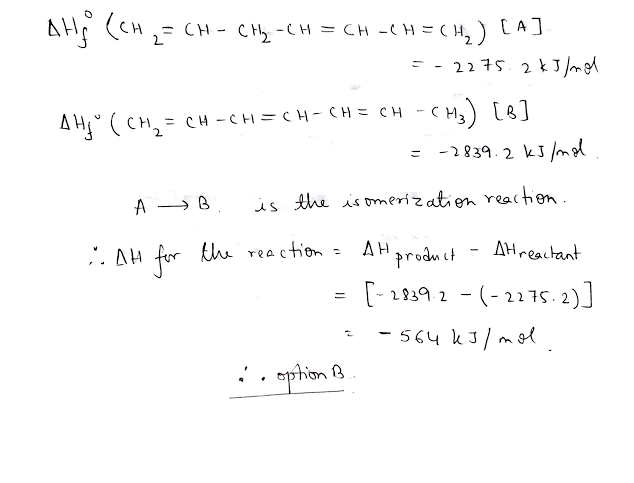 ΔHf° (CH2 = CH - CH2 - CH = CH - CH = CH2) [A]
= - 2275.2 kJ/mol
ΔHf° (CH2 = CH - CH = CH - CH = CH - CH3) [B]
= -2839.2 kJ/mol.
A → B. is the isomerization reaction.
∴ ΔH for the reaction = ΔH product - ΔH reactant
= [-2839.2 - (-2275.2)]
= - 564 kJ/mol.
∴ option B.